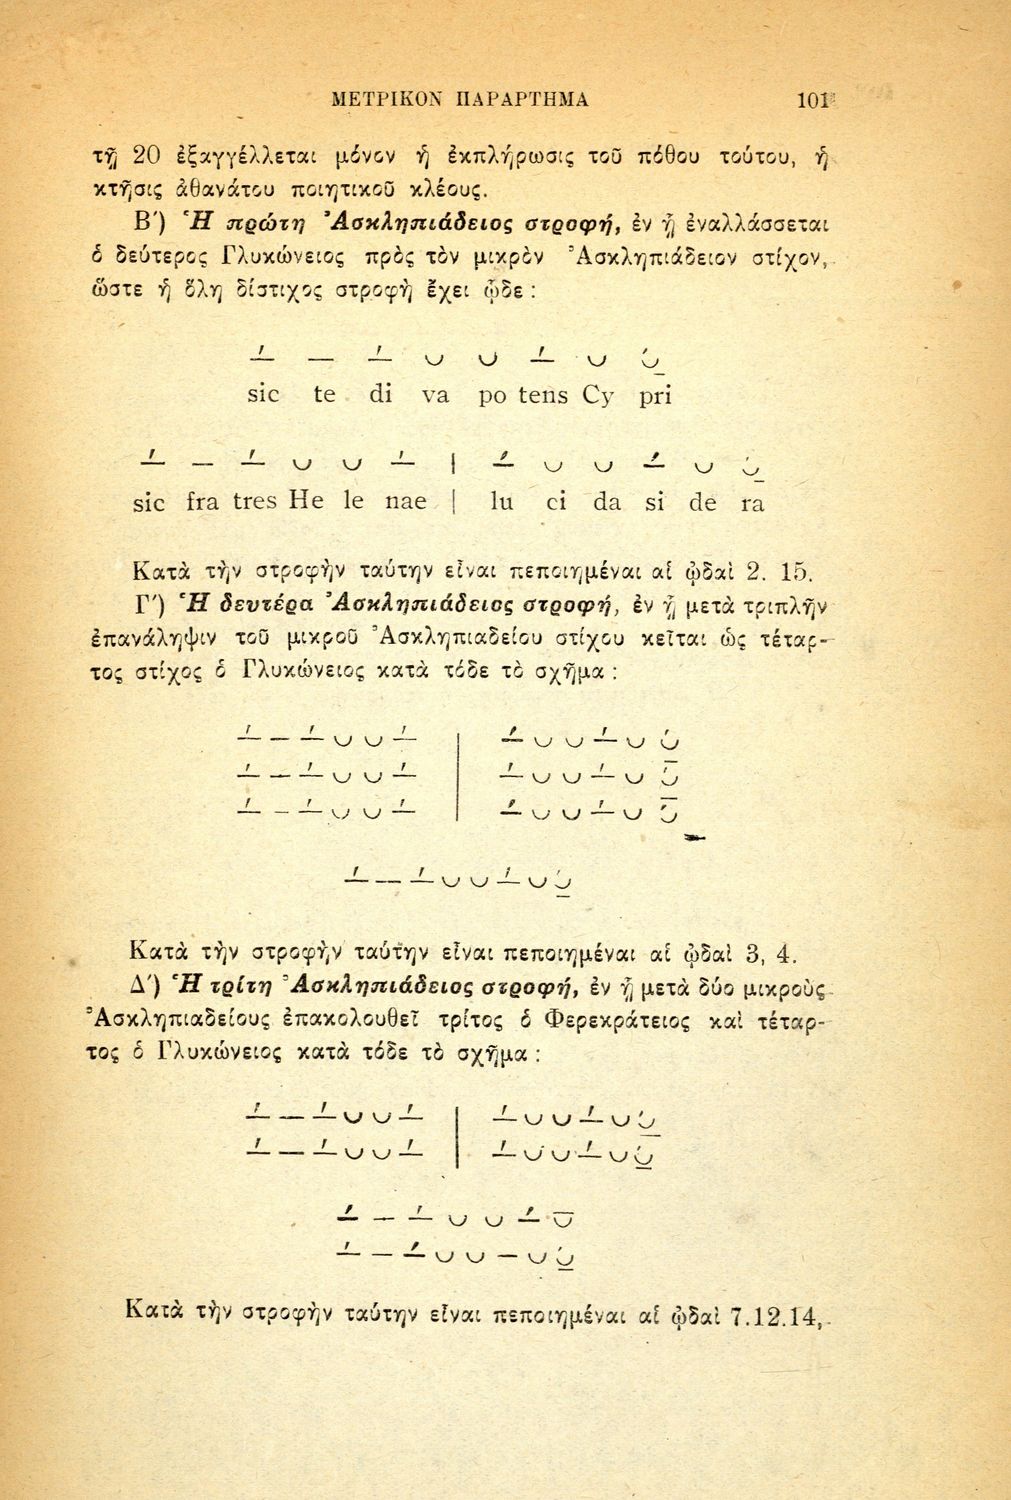 ΜΕΤΡΙΚΟΝ ΠΑΡΑΡΤΗΜΑ 101
τῇ 20 ἐξαγγέλλεται μόνον ἡ ἐκπλήρωσις τοῦ πόθου τούτου, ἡ
κτῆσις ἀθανάτου ποιητικοῦ κλέους.
Β') Ἡ πρώτη Ἀσκληπιάδειος στροφή, ἐν ᾗ ἐναλλάσσεται
ὁ δεύτερος Γλυκώνειος πρὸς τὸν μικρὸν Ἀσκληπιάδειον στίχον,
ὥστε ἡ ὅλη δίστιχος στροφὴ ἔχει ᾧδε :
sic te di va po tens Cy pri
sic fra tres He le nae | lu ci da si de ra
Κατὰ τὴν στροφὴν ταύτην εἶναι πεποιημέναι αἱ ᾠδαὶ 2. 15.
Γ') Ἡ δευτέρα Ἀσκληπιάδειος στροφή, ἐν ᾗ μετὰ τριπλῆν
ἐπανάληψιν τοῦ μικροῦ Ἀσκληπιαδείου στίχου κεῖται ὡς τέταρ-
τος στίχος ὁ Γλυκώνειος κατὰ τόδε τὸ σχῆμα :
Κατὰ τὴν στροφὴν ταύτην εἶναι πεποιημέναι αἱ ᾠδαὶ 3, 4.
Δ') Ἡ τρίτη Ἀσκληπιάδειος στροφή, ἐν ᾗ μετὰ δύο μικροὺς
Ἀσκληπιαδείους ἐπακολουθεῖ τρίτος ὁ Φερεκράτειος καὶ τέταρ-
τος ὁ Γλυκώνειος κατὰ τόδε τὸ σχῆμα :
Κατὰ τὴν στροφὴν ταύτην εἶναι πεποιημέναι αἱ ᾠδαὶ 7.12.14,